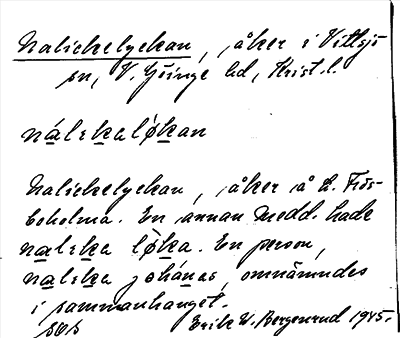 Nalickelyckan, åker i Vittsjö
sn, V. Göinge hd, Krist. l.
nálɩkaløkan
Nalickelyckan, åker å L. Frös-
boholma. En annan medd. hade
nalɩka løka. En person,
nalɩka johánas, omnämndes
i sammanhanget.
SOS Erik W. Bergenrud 1945.